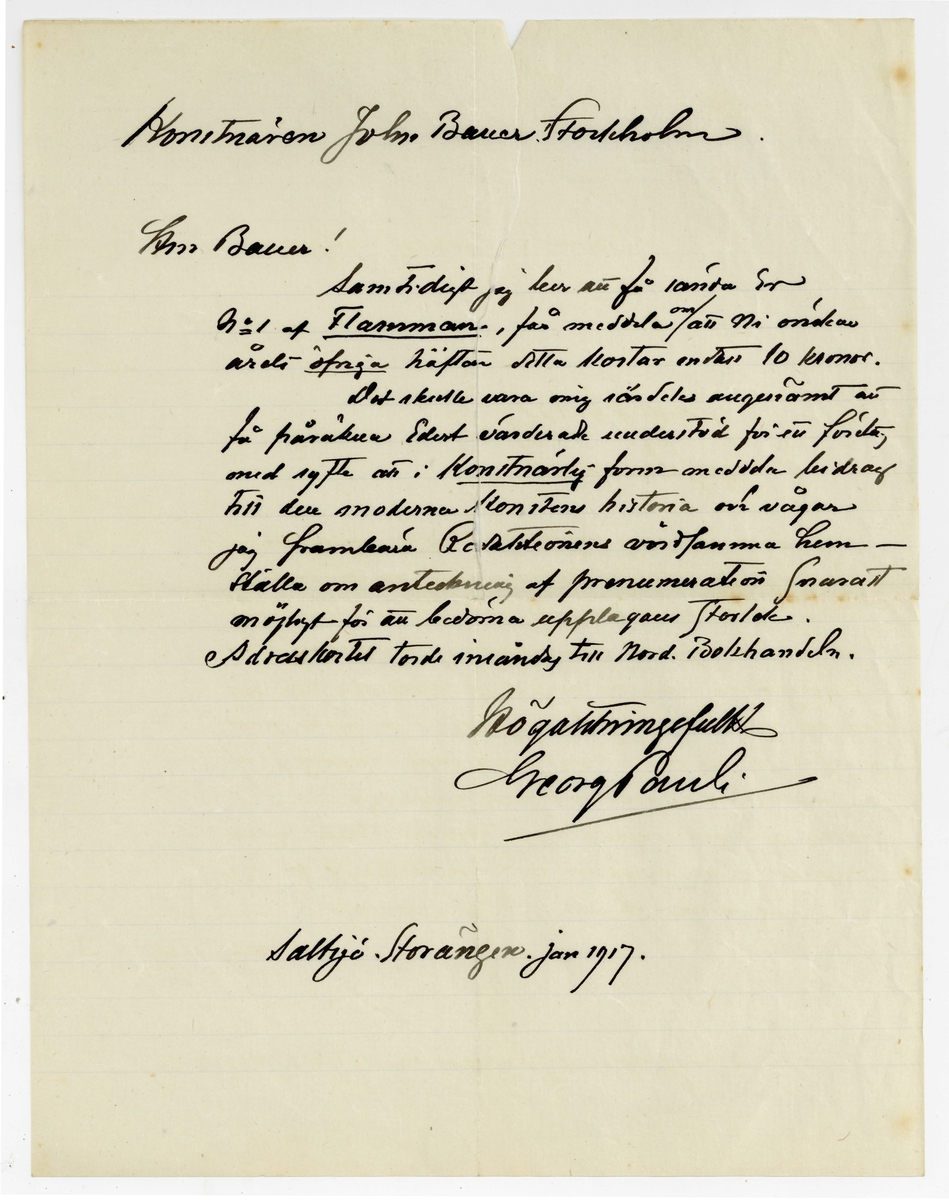 Konstnären John Bauer. Stockholm.
Herr Bauer!
Samtidigt jag ber att få sända Er
No 1 af Flamman, får meddela om/att Ni önskar
årets öfriga häften detta kostar endast 10 kronor.
Det skulle vara mig särdeles angenämt att
få påräkna Edert värderade understöd för ett företag
med syfte att i Konstnärlig form meddela bidrag
till den moderna Konstens historia och vågar
jag frambära Redaktionens vördsamma hem-
ställa om anteckning af prenumeration snarast
möjligt för att bedöma upplagans storlek.
Adresskortet torde insändas till Nord. Bokhandeln.
Högaktningsfullt
Georg Pauli
Saltsjö-Storängen. jan 1917.